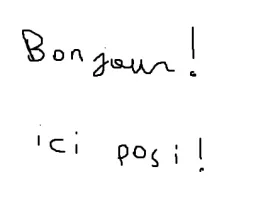 Bonjour!
ici posi!